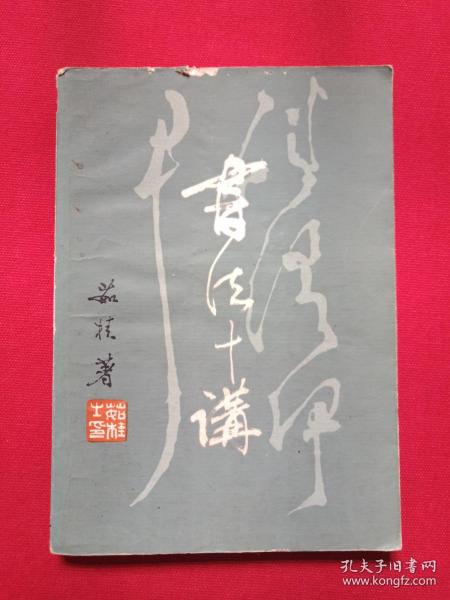 書法十講
茹桂著
茹桂
士印
孔夫子旧书网
www.kongfz.com